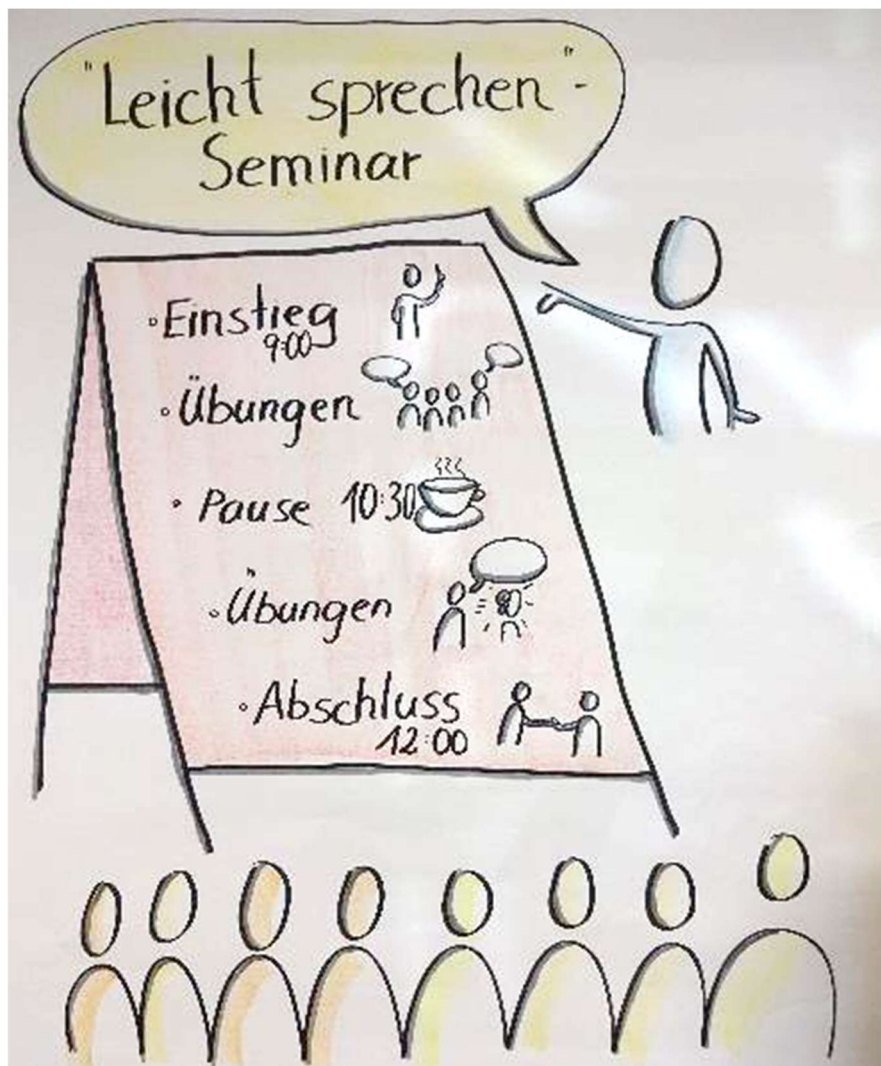 "Leicht sprechen"-
Seminar
• Einstieg
9:00
• Übungen
• Pause 10:30
• Übungen
• Abschluss
12:00